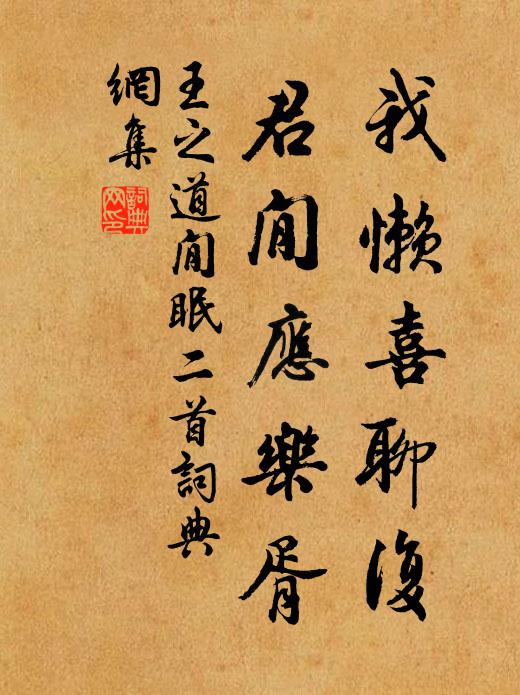 我懶喜聊復
君閒應樂胥
王之道閒眠二首詞典
網集
詞典
网印